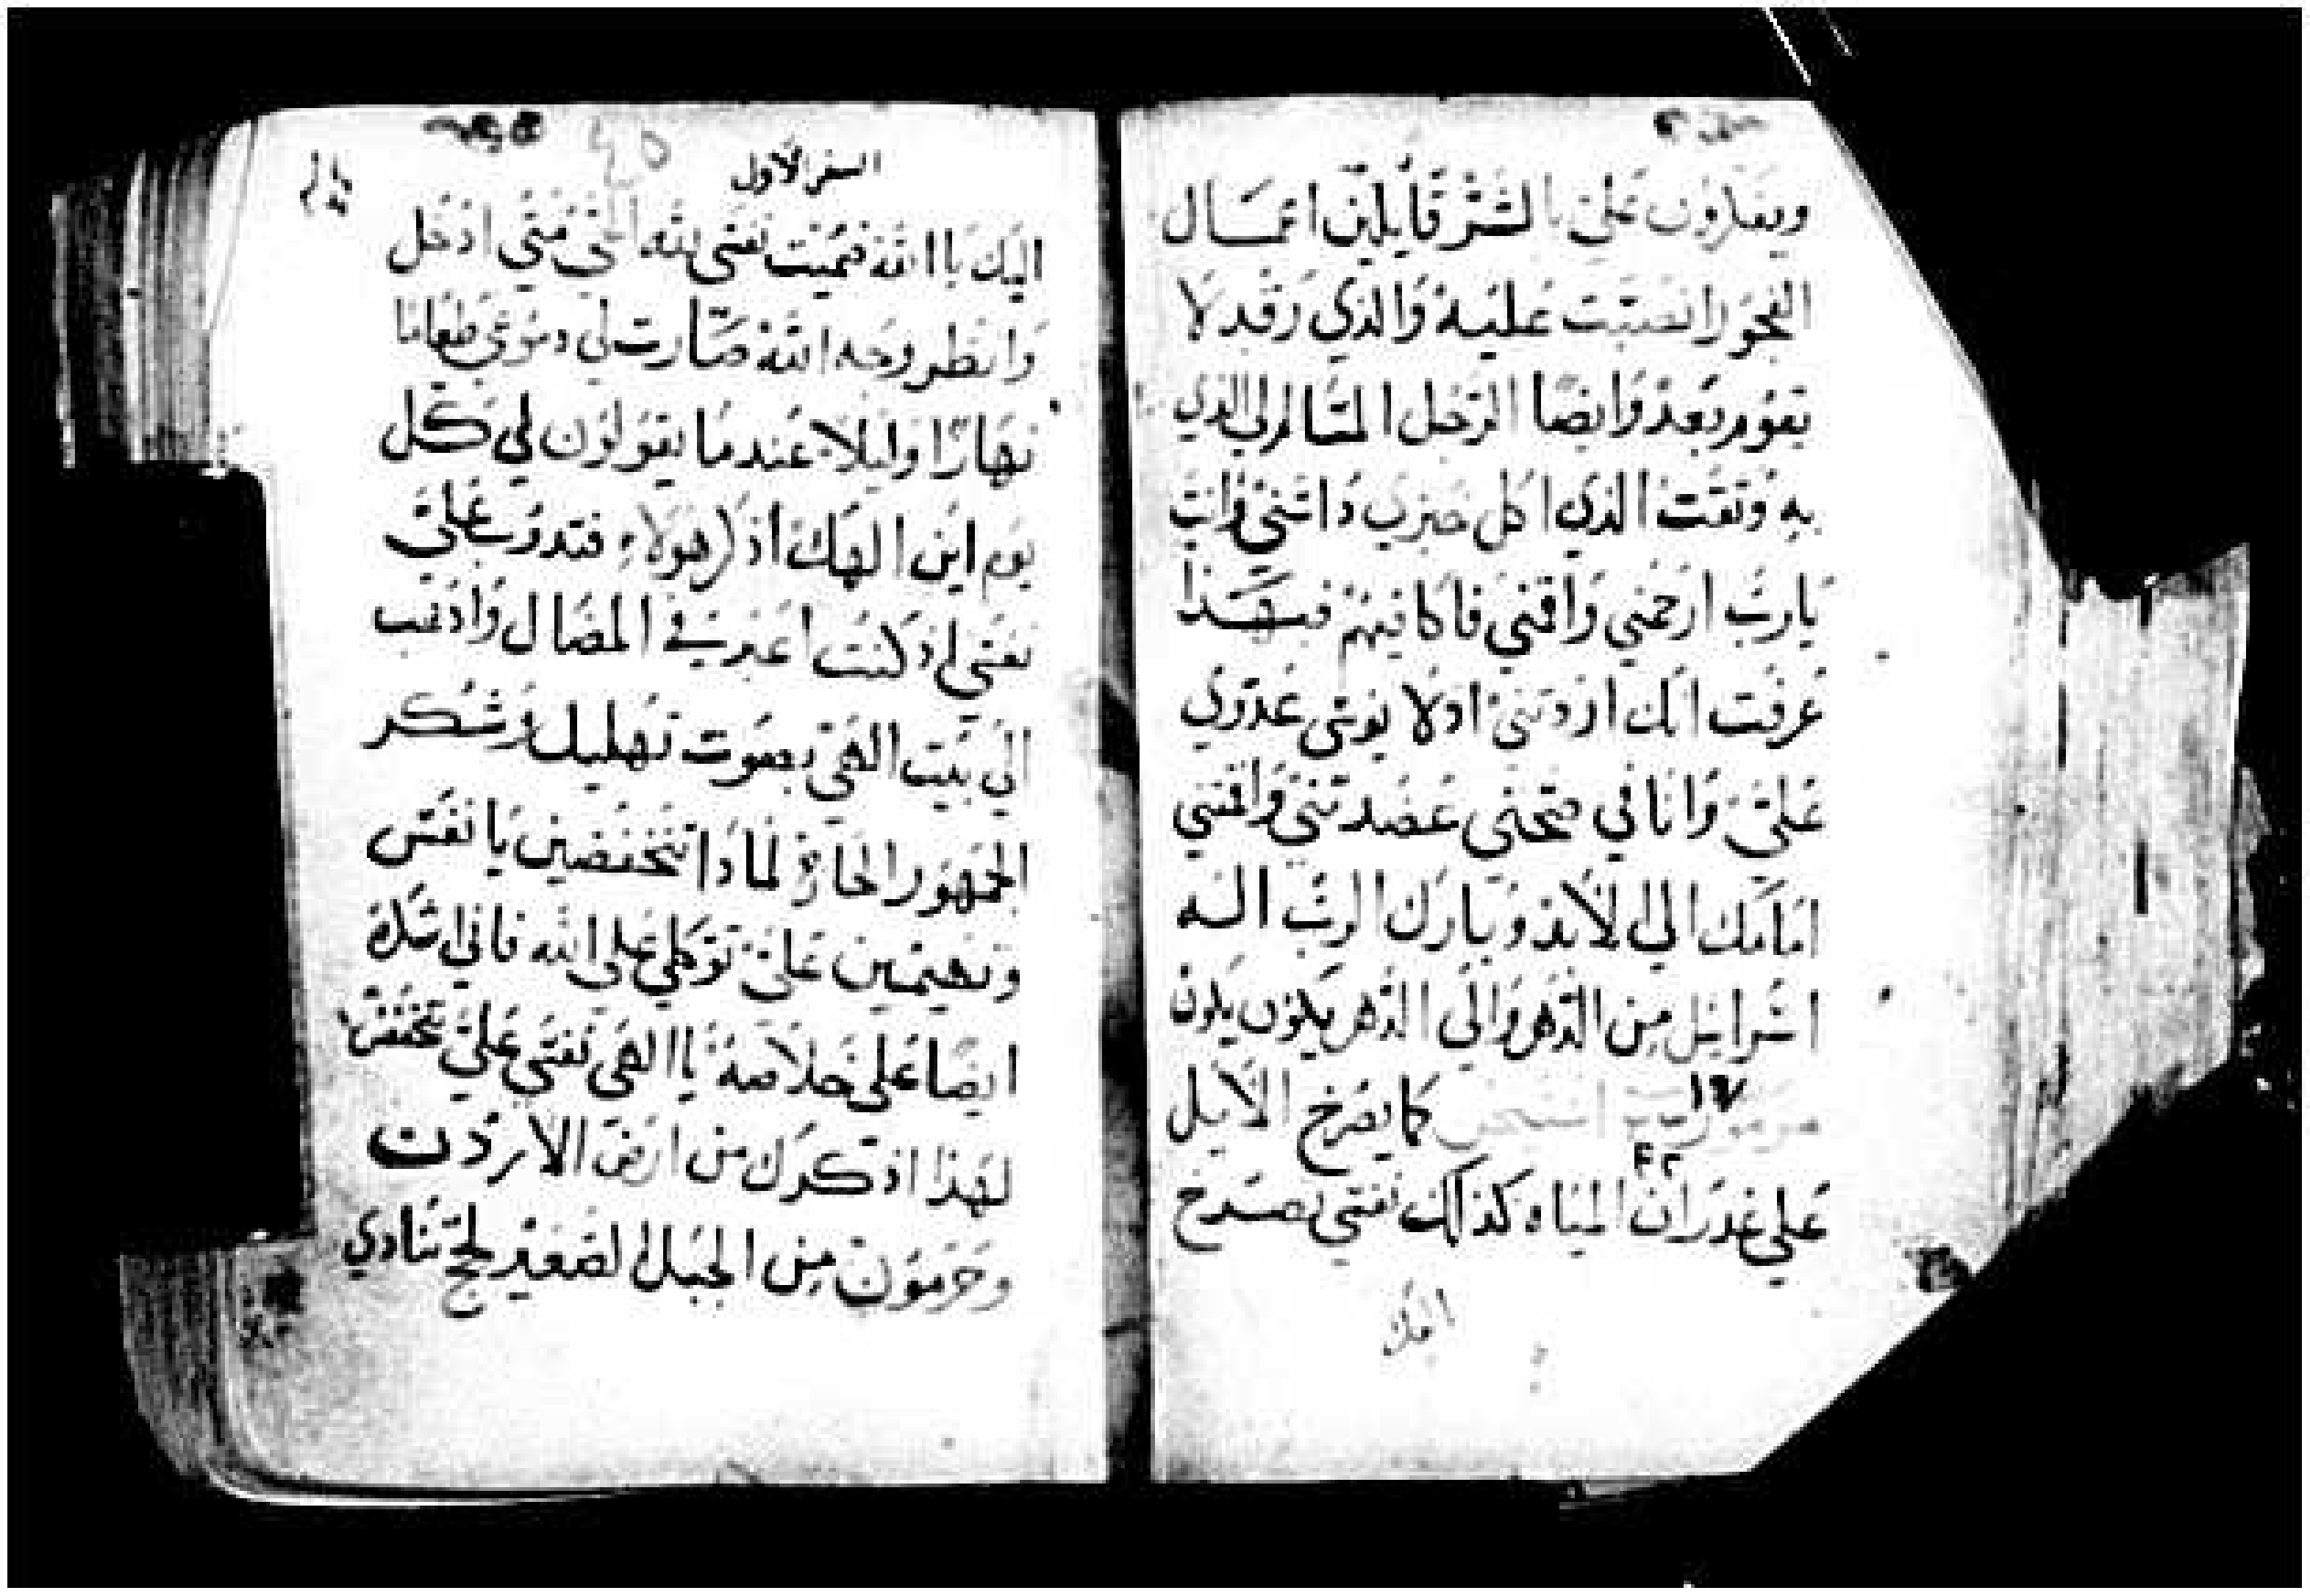 ويفكرون علي بالشر قايلين اعمال
الفجور انصبت عليه والذي رقد لا
يقوم بعد وايضا الرجل المسالم لي الذي
به وثقت الذي اكل خبزي داسني وانت
يارب ارحمني واقمني فاكافيهم فبهذا
عرفت انك اردتني اذ لا يوتي عدوي
علي وانا في صحتي عضدتني واقمتني
امامك الي الابد وبارك الرب اله
اسرايل من الدهر والي الدهر يكون يكون
كما يصرخ الايل
علي غدران المياه كذلك نفسي تصرخ
اليك
السفر الاول
٤٥
اليك يا الله ضميت نفسي لله الحي متي ادخل
وانظر وجه الله صارت لي دموعي طعاما
نهارا وليلا عندما يقولون لي كل
يوم اين الهك اذكر هولاء فتدوب علي
نفسي اذ كنت اعبر في المضال واذهب
الي بيت الهي بصوت تهليل وشكر
الجمهور الحاز لماذا تنخفضين يا نفس
وتهيمين علي توكلي علي الله فاني اشكره
ايضا علي خلاصه يا الهي نفسي علي تنخفض
لهذا اذكرك من ارض الاردن
وحرمون من الجبل الصغير لج تنادي